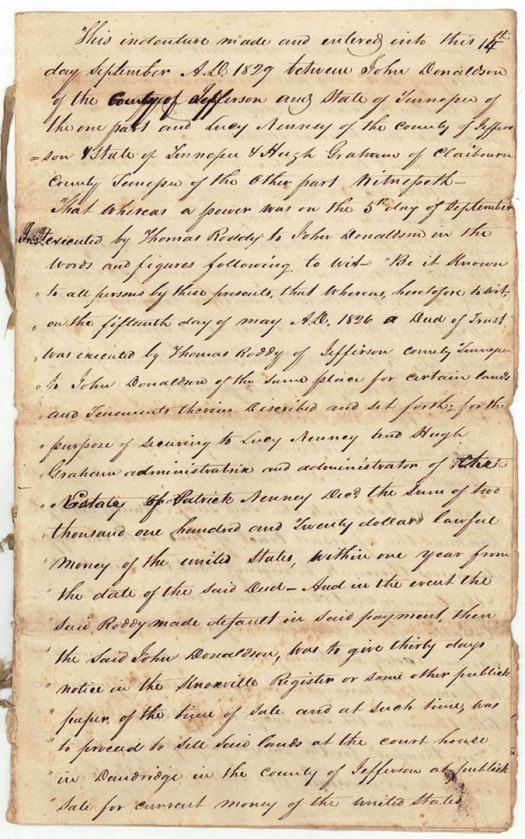 This indenture made and entered into this 14th
day September A.D. 1829 between John Donaldson
of the County of Jefferson and State of Tennessee of
the one part and Lucy Nenney of the County of Jeffer
=son & State of Tennessee & Hugh Graham of Claibourn
County Tennessee of the Other part Witnesseth—
That whereas a power was on the 5th day of September
Inst. executed by Thomas Roddy to John Donaldson in the
Words and figures following to wit "Be it Known
" to all persons by these presents, that Whereas, heretofore to wit,
" on the fifteenth day of may A.D. 1826 a Deed of Trust
" was executed by Thomas Roddy of Jefferson County Tennessee
" to John Donaldson of the Same place for certain lands
" and Tenements therein Discribed and set forth; for the
" purpose of Securing to Lucy Nenney and Hugh
" Graham administratrix and administrator of the
" Estate of Patrick Nenney Decd. the Sum of two
" thousand one hundred and Twenty dollars lawful
" money of the united States, within one year from
" the date of the said Deed— And in the event the
" Said Roddy made default in Said payment, then
" the Said John Donaldson, was to give thirty days
" notice in the Knoxville Register or some other publick
" paper, of the time of Sale and at such time, was
" to proceed to Sell Said lands at the court house
" in Dandridge in the county of Jefferson at publick
" Sale for current money of the United States